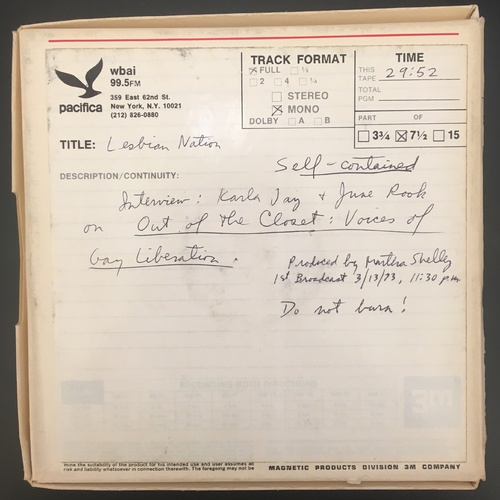 wbai
99.5FM
359 East 62nd St.
New York, N.Y. 10021
(212) 826-0880
pacifica
TRACK FORMAT
FULL ½
2 4 ¼
STEREO
MONO
DOLBY A B
TIME
THIS TAPE 29:52
TOTAL PGM
PART OF
3¾ 7½ 15
TITLE: Lesbian Nation
Self-contained
DESCRIPTION/CONTINUITY:
Interview: Karla Jay + June Rook
on Out of the Closet: Voices of
Gay Liberation.
Produced by Martha Shelley
1st Broadcast 3/13/73, 11:30 p.m.
Do not burn!
mine the suitability of the product for his intended use and user assumes all
risk and liability whatsoever in connection therewith. The foregoing may not be
MAGNETIC PRODUCTS DIVISION 3M COMPANY